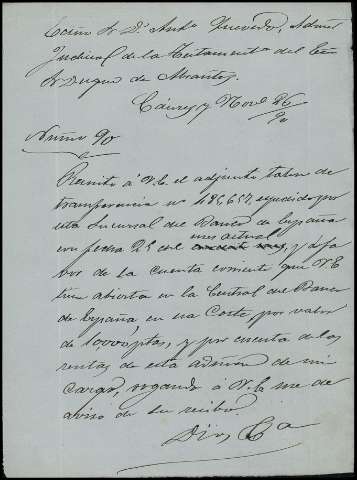 Excmo Sr Dn Anto Quevedo, Admor
Judicial de la Testamentª del Exmo
Sr Duque de Abrantes.
Cáceres y Nove 26/90
Núm 90
Remito á V.E. el adjunto talon de
transferencia nº 495,657, expedido por
esta Sucursal del Banco de España
con fecha 25 del mes actual, y á fa-
vor de la cuenta corriente que V.E.
tiene abierta en la Central del Banco
de España en esa Corte, por valor
de 10000 ptas, y por cuenta de las
rentas de esta admon de mi
cargo, rogando á V.E. me dé
aviso de su recibo
Dios &a